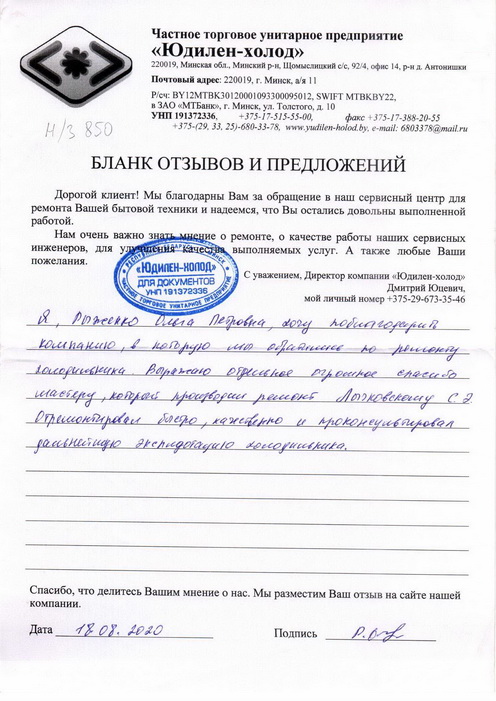 Частное торговое унитарное предприятие
«Юдилен-холод»
220019, Минская обл., Минский р-н, Щомыслицкий с/с, 92/4, офис 14, р-н д. Антонишки
Почтовый адрес: 220019, г. Минск, а/я 11
Р/сч: BY12MTBK30120001093300095012, SWIFT MTBKBY22,
в ЗАО «МТБанк», г. Минск, ул. Толстого, д. 10
УНП 191372336, +375-17-515-55-00, факс +375-17-388-20-55
+375-(29, 33, 25)-680-33-78, www.yudilen-holod.by, e-mail: 6803378@mail.ru
Н/З 850
БЛАНК ОТЗЫВОВ И ПРЕДЛОЖЕНИЙ
Дорогой клиент! Мы благодарны Вам за обращение в наш сервисный центр для
ремонта Вашей бытовой техники и надеемся, что Вы остались довольны выполненной
работой.
Нам очень важно знать мнение о ремонте, о качестве работы наших сервисных
инженеров, для улучшения качества выполняемых услуг. А также любые Ваши
пожелания.
«ЮДИЛЕН-ХОЛОД»
ДЛЯ ДОКУМЕНТОВ
УНП 191372336
ЧАСТНОЕ ТОРГОВОЕ УНИТАРНОЕ ПРЕДПРИЯТИЕ
С уважением, Директор компании «Юдилен-холод»
Дмитрий Юцевич,
мой личный номер +375-29-673-35-46
Я, Рыженко Ольга Петровна, хочу поблагодарить
компанию, в которую мы обратились по ремонту
холодильника. Выражаю отдельное огромное спасибо
мастеру, который производил ремонт Лысковскому С.Э.
Отремонтировал быстро, качественно и проконсультировал
дальнейшую эксплуатацию холодильника.
Спасибо, что делитесь Вашим мнение о нас. Мы разместим Ваш отзыв на сайте нашей
компании.
Дата 18.08.2020 Подпись